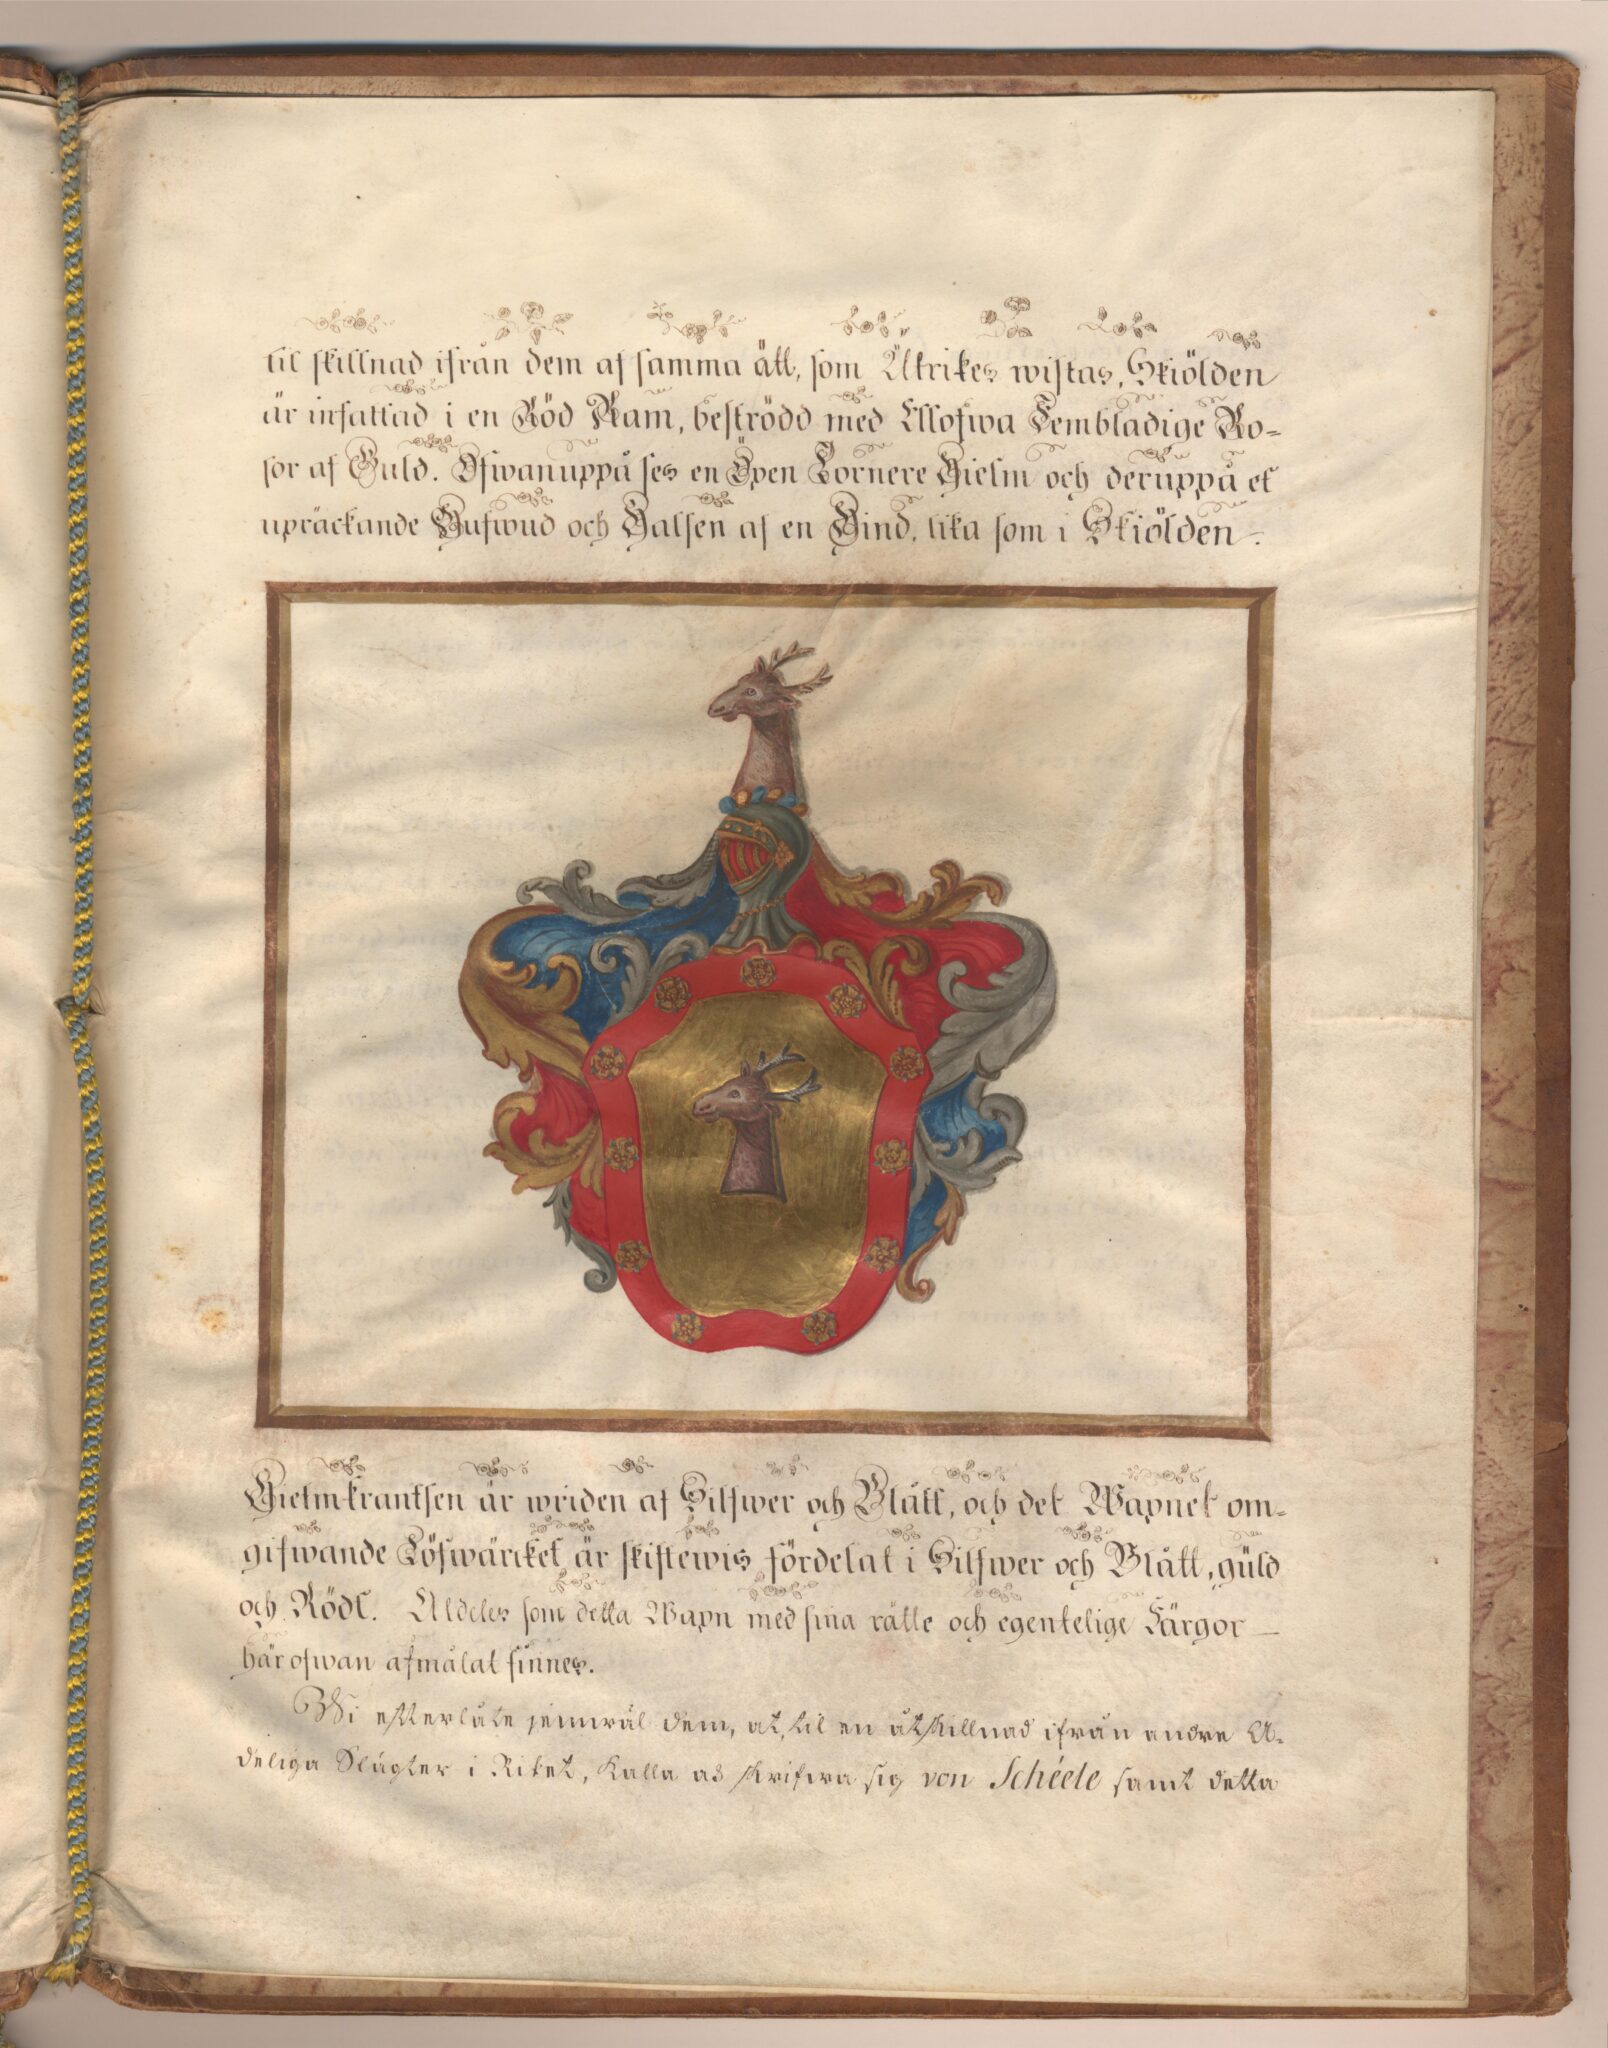 til skillnad ifrån dem af samma ätt, som Utrikes wistas, Skiölden
är infattad i en Röd Ram, beströdd med Ellofwa Fembladige Ro-
sor af Guld. Ofwanuppå ses en Öpen Tornere Hielm och deruppå et
upräckande Hufwud och Halsen af en Hind, lika som i Skiölden.
Hielmkrantsen är wriden af Silfwer och Blått, och det Wapnet om-
gifwande Löfwärcket är skiftewis fördelat i Silfwer och Blått, guld
och Rödt. Aldeles som detta Wapn med sina rätte och egentelige Färgor
här ofwan afmålat finnes.
Wi efterlåte jemwäl dem, at, til en åtskillnad ifrån andre A-
deliga Slägter i Riket, kalla och skrifwa sig von Schéele samt detta